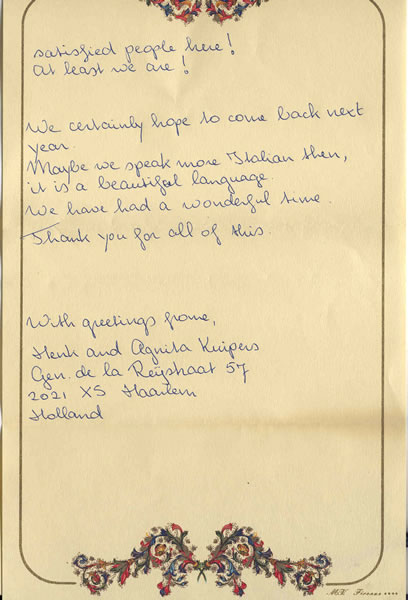 satisfied people here!
At least we are!
We certainly hope to come back next
year.
Maybe we speak more Italian then,
it is a beautiful language.
We have had a wonderful time.
Thank you for all of this.
With greetings frome,
Henk and Agnita Kuipers
Gen. de la Reijstraat 57
2021 XS Haarlem
Holland